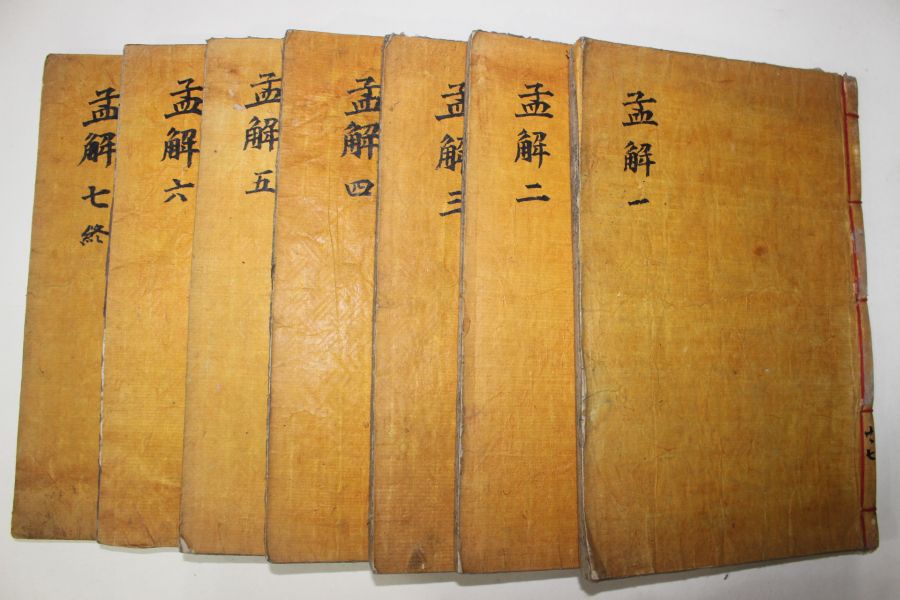 孟解一
孟解二
孟解三
孟解四
孟解五
孟解六
孟解七終
共七